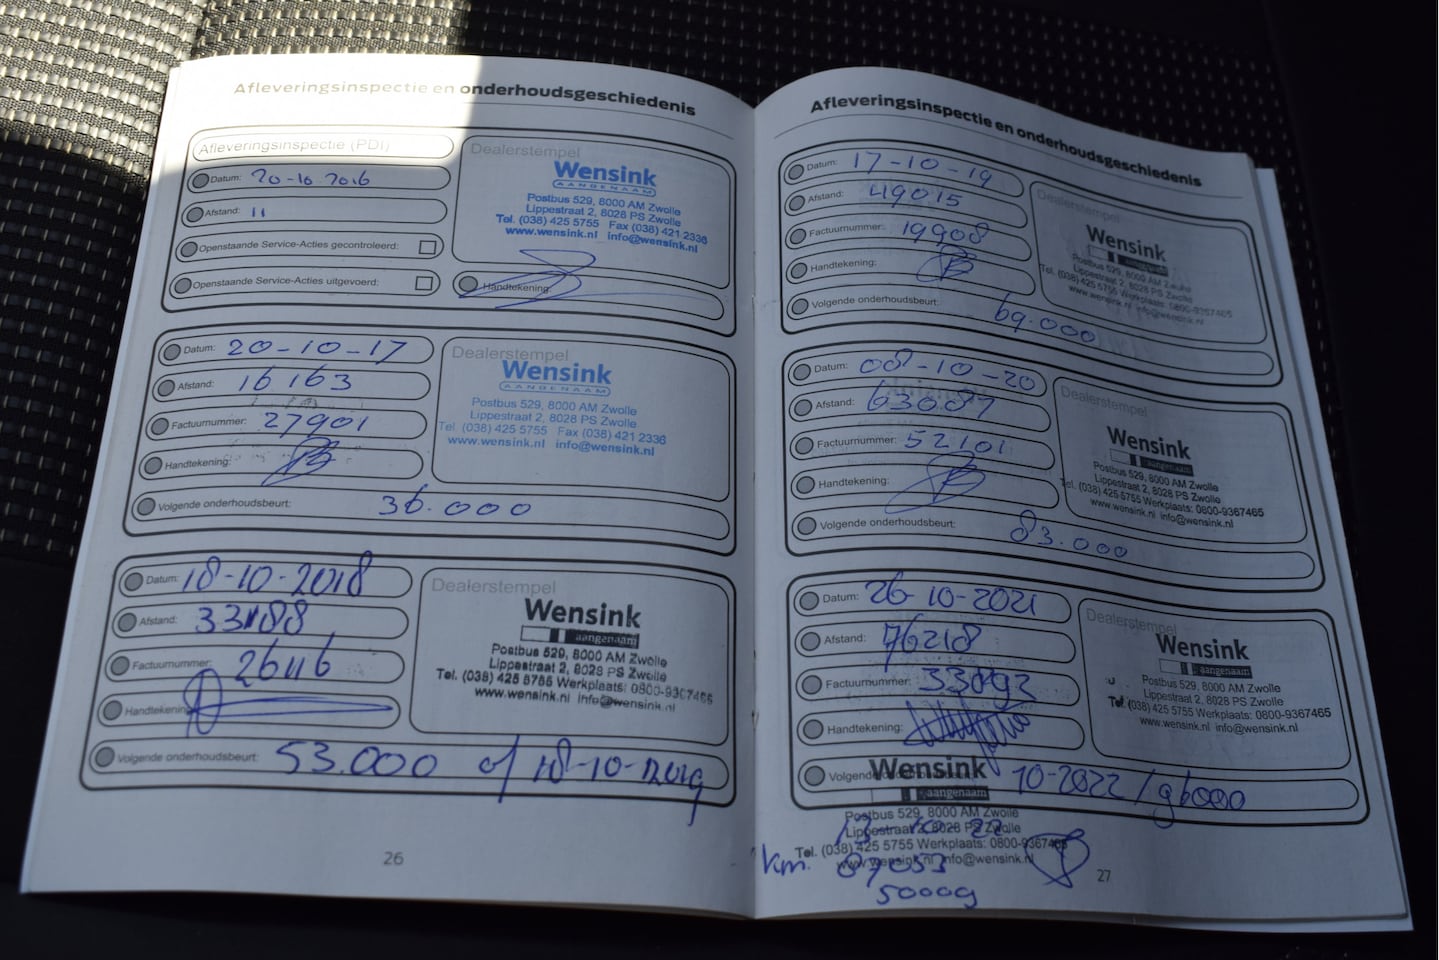 Afleveringsinspectie en onderhoudsgeschiedenis
Afleveringsinspectie (PDI)
Datum: 20-10-2016
Afstand: 11
Openstaande Service-Acties gecontroleerd:
Openstaande Service-Acties uitgevoerd:
Dealerstempel
Wensink
AANGENAAM
Postbus 529, 8000 AM Zwolle
Lippestraat 2, 8028 PS Zwolle
Tel. (038) 425 5755 Fax (038) 421 2336
www.wensink.nl info@wensink.nl
Handtekening:
Datum: 20-10-17
Afstand: 16163
Factuurnummer: 27901
Handtekening:
Volgende onderhoudsbeurt: 36.000
Dealerstempel
Wensink
AANGENAAM
Postbus 529, 8000 AM Zwolle
Lippestraat 2, 8028 PS Zwolle
Tel. (038) 425 5755 Fax (038) 421 2336
www.wensink.nl info@wensink.nl
Datum: 18-10-2018
Afstand:
Factuurnummer:
Handtekening:
Volgende onderhoudsbeurt: 53.000 of 18-10-2019
Dealerstempel
Wensink
aangenaam
Postbus 529, 8000 AM Zwolle
Lippestraat 2, 8028 PS Zwolle
Tel. (038) 425 5755 Werkplaats: 0800-9367465
www.wensink.nl info@wensink.nl
26
Afleveringsinspectie en onderhoudsgeschiedenis
Datum: 17-10-19
Afstand: 49015
Factuurnummer: 19908
Handtekening:
Volgende onderhoudsbeurt: 69.000
Dealerstempel
Wensink
aangenaam
Postbus 529, 8000 AM Zwolle
Lippestraat 2, 8028 PS Zwolle
Tel. (038) 425 5755 Werkplaats: 0800-9367465
www.wensink.nl info@wensink.nl
Datum: 08-10-20
Afstand: 63089
Factuurnummer: 52101
Handtekening:
Volgende onderhoudsbeurt: 83.000
Dealerstempel
Wensink
aangenaam
Postbus 529, 8000 AM Zwolle
Lippestraat 2, 8028 PS Zwolle
Tel. (038) 425 5755 Werkplaats: 0800-9367465
www.wensink.nl info@wensink.nl
Datum: 26-10-2021
Afstand: 76218
Factuurnummer:
Handtekening:
Volgende onderhoudsbeurt: 10-2022 / 96000
Dealerstempel
Wensink
aangenaam
Postbus 529, 8000 AM Zwolle
Lippestraat 2, 8028 PS Zwolle
Tel. (038) 425 5755 Werkplaats: 0800-9367465
www.wensink.nl info@wensink.nl
Wensink
aangenaam
Postbus 529, 8000 AM Zwolle
Lippestraat 2, 8028 PS Zwolle
Tel. (038) 425 5755 Werkplaats: 0800-9367465
www.wensink.nl info@wensink.nl
13 10-22
km. 87053
50009
27